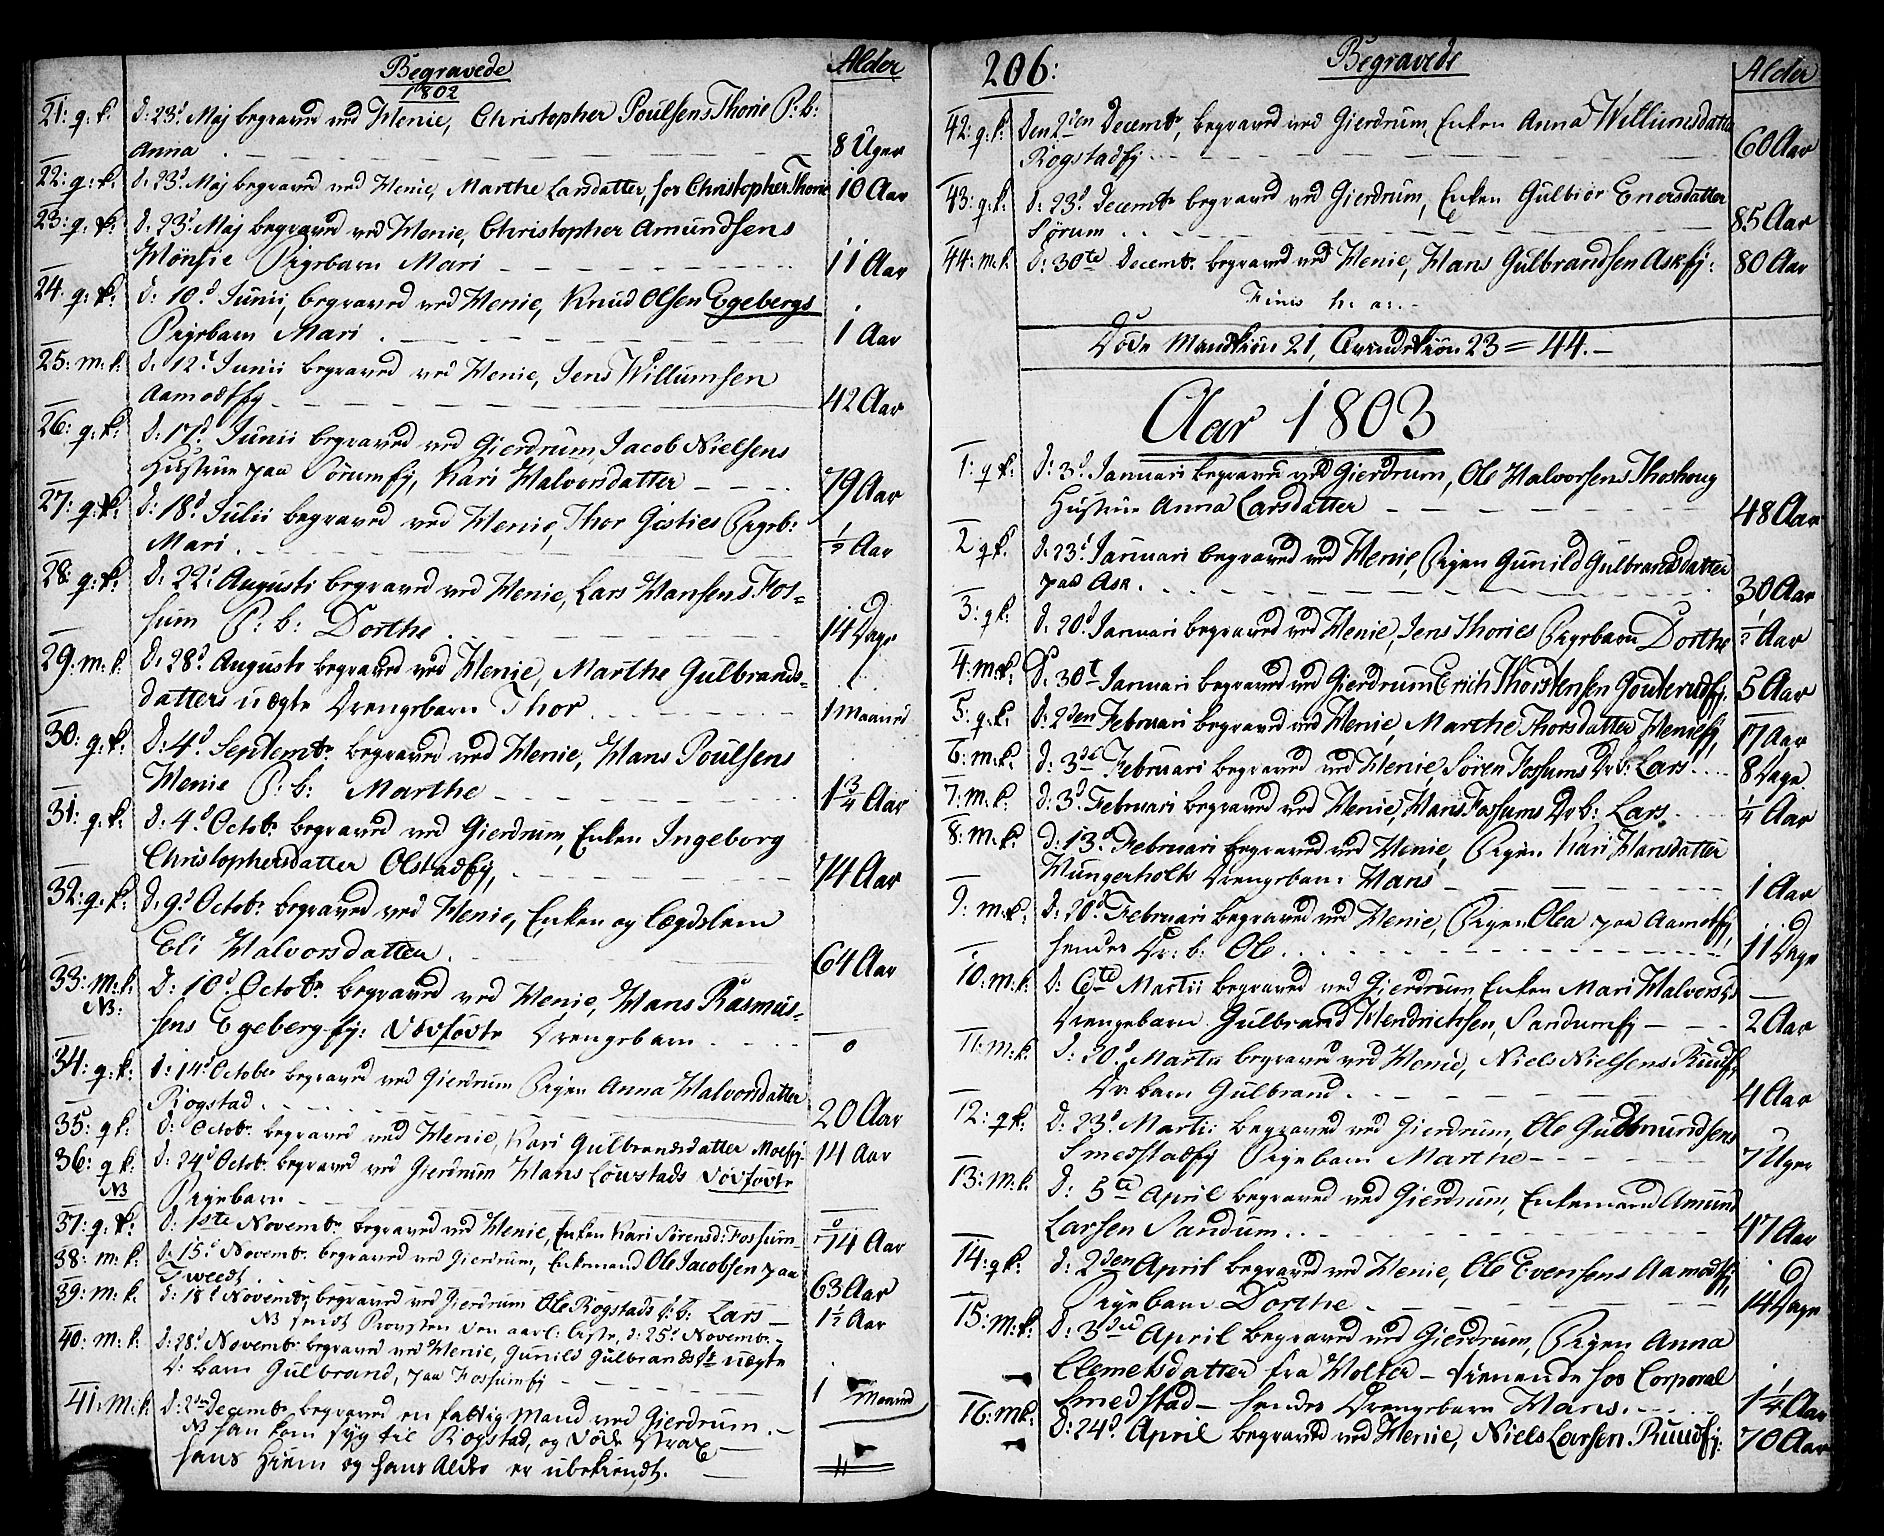 Begravede
1802
Alder
21: q: k: d: 23d Maj begraved ved Henie, Christopher Poulsens Thorie P: b:
Anna 8 Uger
22: q: k: d: 23d Maj begraved ved Henie, Marthe Larsdatter, hos Christopher Thorie 10 Aar
23: q: k: d: 23d Maj begraved ved Henie, Christopher Amundsens
Mønsie Pigebarn Mari 11 Aar
24: q: k: d: 10d Junii, begraved ved Henie, Knud Olsen Egebergs
Pigebarn Mari 1 Aar
25: m: k: d: 12t Junii begraved ved Henie, Jens Willumsen
Aamodtfy 42 Aar
26: q: k: d: 17d Junii begraved ved Gierdrum, Jacob Nielsens
Hustrue paa Sørumfy, Kari Halvorsdatter 79 Aar
27: q: k: d: 18d Julii begraved ved Henie, Thor Gisties Pigeb:
Mari 1/2 Aar
28: q: k: d: 22d Augusti begraved ved Henie, Lars Hansens Fos=
sum P: b: Dorthe 14 Dage
29: m: k: d: 28d Augusti begraved ved Henie, Marthe Gulbrands=
datters uægte Drengebarn Thor 1 Maaned
30: q: k: d: 4d Septembr. begraved ved Henie, Hans Poulsens
Henie P: b: Marthe 1 3/4 Aar
31: q: k: d: 4d Octobr begraved ved Gierdrum, Enken Ingeborg
Christophersdatter Olstadfy, 74 Aar
32: q: k: d: 9d Octobr. begraved ved Henie, Enken og Lægdslem
Eli Halvorsdatter 64 Aar
33: m: k: d: 10d Octobr. begraved ved Henie, Hans Rasmus=
NB: sens Egeberg-fy: dødfødte Drengebarn 0
34: q: k: d: 14d October begraved ved Gierdrum Pigen Anna Halvorsdatter
Rogstad 20 Aar
35: q k: d: Octobr. begraved ved Henie, Kari Gulbrandsdatter Moefy 14 Aar
36: q k: d: 24d Octobr. begraved ved Gierdrum Hans Løwstads dødfødte
NB Pigebarn
37: q: k: d: 1ste Novembr. begraved ved Henie, Enken Kari Sørensd: Fossum 74 Aar
38: m: k: d: 15d Novembr. begraved ved Gierdrum, Enkemand Ole Jacobsen paa
Tweedt 63 Aar
39: m: k: d: 18d Novembr, begraved ved Gierdrum Ole Rogstads d: b: Lars 1 1/2 Aar
NB sendt Provsten den aarl: Liste, d: 25d Novembr.
40: m: k: d: 28d Novembr begraved ved Henie, Gunild Gulbrandsdr uægte
D: barn Gulbrand, paa Fossumfy 1 Maaned
41: m: k: d: 2den Decembr. begraved en fattig Mand ved Gierdrum.
NB han kom syg til Rogstad, og døde strax
hans Hiem og hans Alder er ubekiendt.
206:
Begravede
Alder
42: q: k: Den 2den Decembr, begraved ved Gierdrum, Enken Anna Willumsdatter
Rogstadfy 60 Aar
43: q: k: d: 23d Decembr begraved ved Gierdrum, Enken Gulbiør Enersdatter
Sørum 85 Aar
44: m: k. d: 30te Decembr. begraved ved Henie, Hans Gulbrandsen Askfy: 80 Aar
Finis h: a:
Døde Mandkiøn 21, Qvindekiøn 23 = 44.
Aar 1803
1: q k: d: 3d Januari begraved ved Gierdrum, Ole Halvorsens Thoshoug
Hustrue Anna Larsdatter 48 Aar
2 q k. d. 23d Januari begraved ved Henie, Pigen Gunild Gulbrandsdatter
paa Ask. 30 Aar
3: q k. d: 20d Januari begraved ved Henie, Jens Thories Pigebarn Dorthe 1/2 Aar
4: m: k: d. 30t Januari begraved ved Gierdrum Erich Thorstensen Gouterudfy. 5 Aar
5: q. k. d: 2den Februari begraved ved Henie, Marthe Thorsdatter Heniefy, 17 Aar
6: m: k. d: 3de Februari begraved ved Henie, Søren Fossums Dr b: Lars 8 Dage
7: m: k. d: 3d Februari begraved ved Henie, Hans Fossums Dr b: Lars 1/4 Aar
8: m. k: d: 13d Februari begraved ved Henie, Pigen Kari Hansdatter
Hungerholts Drengebarn Hans 1 Aar
9: m: k: d: 20d Februari begraved ved Henie, Pigen Olea paa Aamotfy,
hendes Dr: b: Ole 11 Dage
10: m: k. d: 6te Martii begraved ved Gierdrum, Enken Mari Halvorsds
Drengebarn Gulbrand Hendrichsen, Sandumfy 2 Aar
11: m: k. d: 20d Martii begraved ved Henie, Niels Nielsens Ruudfy
Dr barn Gulbrand 4 Aar
12: q k: d: 23d Martii begraved ved Gierdrum, Ole Gudmundsens
Smedstadfy Pigebarn Marthe 7 Uger
13: m: k. d: 5te April begraved ved Gierdrum, Enkemand Amund
Larsen Sandum 47 Aar
14: q k. d: 2den April begraved ved Henie, Ole Evensens Aamodtfy,
Pigebarn Dorthe 14 Dage
15: m: k: d: 3die April begraved ved Gierdrum, Pigen Anna
Clemetsdatter fra Holter - tienende hos Corporal
Smedstad - hendes Drengebarn Hans. 1 1/4 Aar
16: m k: d: 24d. April begraved ved Henie, Niels Larsen Ruudfy: 70 Aar